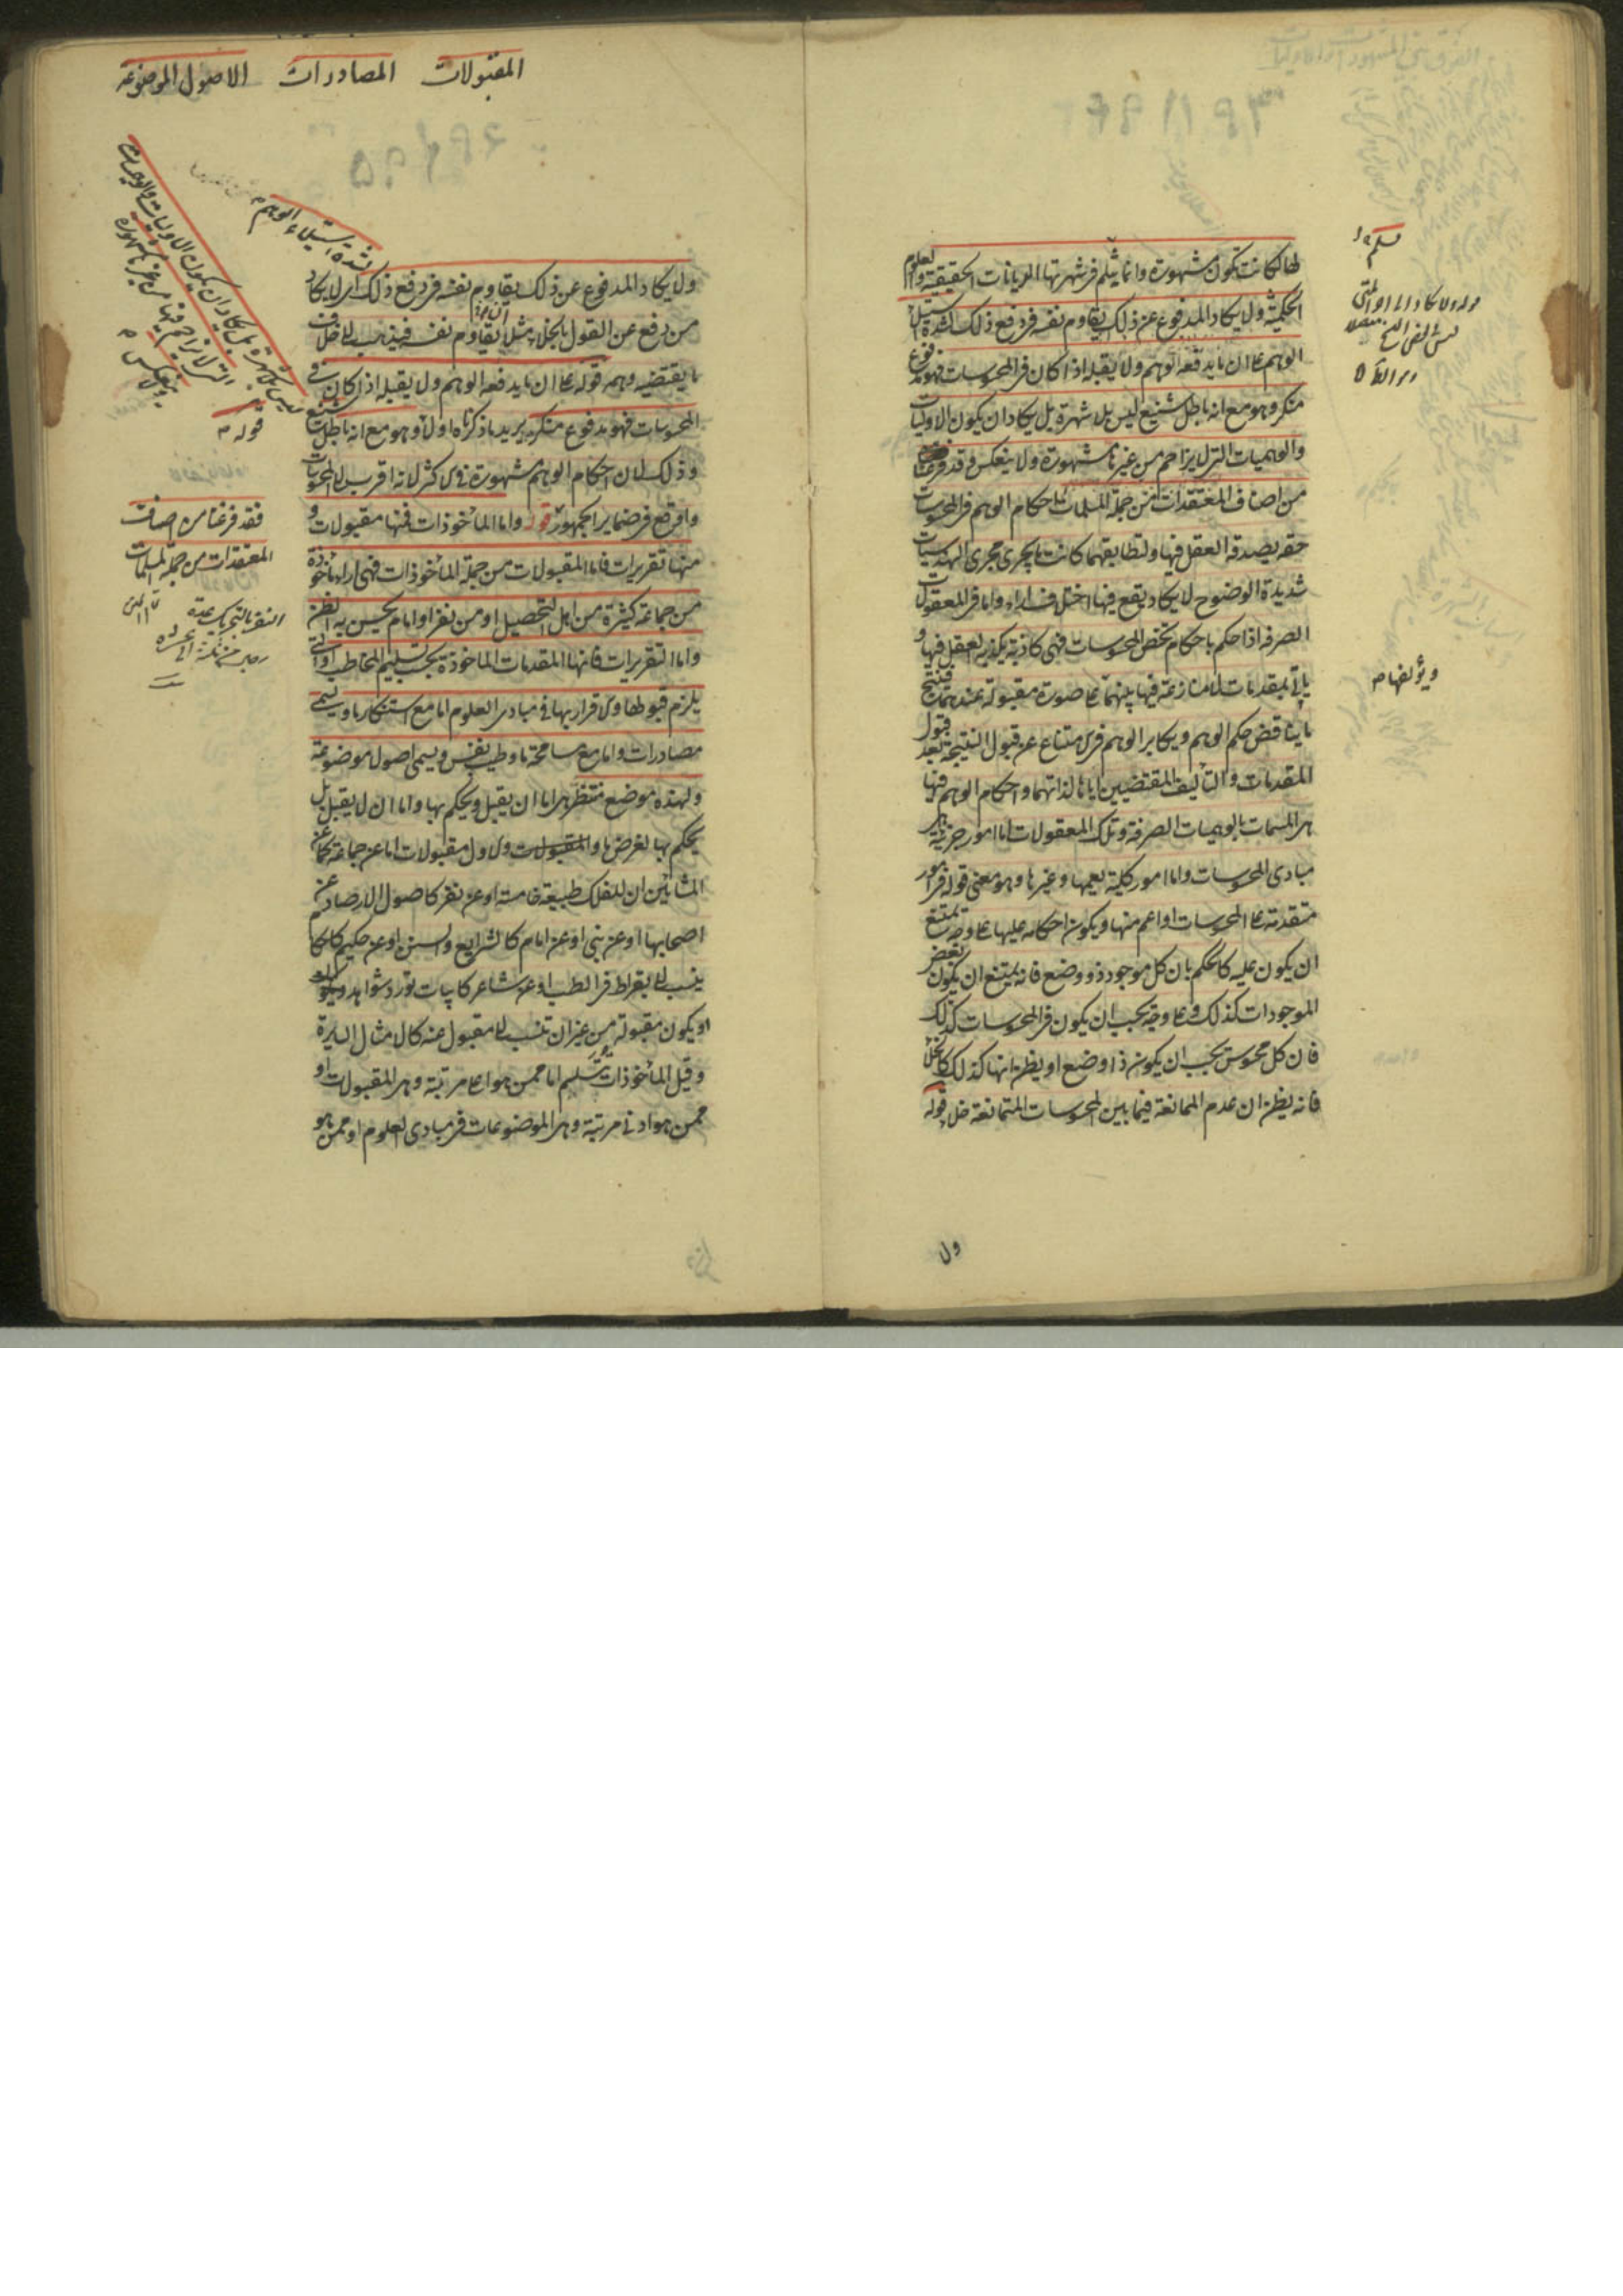 لها لكانت تكون مشهورة وانما يثلم فى شهرتها الديانات الحقيقية والعلوم
الحكمية ولا يكاد المدفوع عن ذلك يقاوم نفسه فى دفع ذلك لشدة استيلاء
الوهم على ان ما يدفعه الوهم ولا يقبله اذا كان فى المحسوسات فهو مدفوع
منكر وهو مع انه باطل شنيع ليس بلا شهرة بل يكاد ان يكون الاوليات
والوهميات التى لا يزاحم من غيرها مشهورة ولا ينعكس فقد فرغنا
من اصناف المعتقدات من جملة المسلمات احكام الوهم فى المحسوسات
حقة يصدقه العقل فيها ولتطابقهما كانت ما يجرى مجرى الهندسيات
شديدة الوضوح لا يكاد يقع فيها اختلاف اراء واما فى المعقولات
الصرفة اذا حكم باحكام تخص المحسوسات فهى كاذبة يكذبه العقل فيها و
ياتى بمقدمات لا منازعة فيها بينهما على صورة مقبولة عندهما فتنتج
ما يناقض حكم الوهم ويكابر الوهم فى الامتناع عن قبول النتيجة بعد قبول
المقدمات والتأليف المقتضيين اياها لذاتهما واحكام الوهم فيها
هى المسمات بالوهميات الصرفة وتلك المعقولات اما امور جزئية هى
مبادى المحسوسات واما امور كلية يعمها وغيرها وهو معنى قوله فى امور
متقدمة على المحسوسات او اعم منها ويكون احكامه عليها على وجه يمتنع
ان يكون عليه كالحكم بان كل موجود ذو وضع فانه يمتنع ان يكون بعض
الموجودات كذلك وعلى وجه يجب ان يكون فى المحسوسات كذلك
فان كل محسوس يجب ان يكون ذا وضع او يظن انها كذلك كالخلا
فانه يظن ان عدم الممانعة فيما بين المحسوسات المتمانعة خلا قوله
ويؤلفها م
ولا
المقبولات المصادرات الاصول الموضوعة
لشدة استيلاء الوهم م
ليس بلا شهرة بل يكاد ان يكون الاوليات والوهميات
التى لا يزاحم فيها من غيرها مشهورة
ولا ينعكس م
قوله م
ولا يكاد المدفوع عن ذلك يقاوم نفسه فى دفع ذلك اى لا يكاد
من دفع عن القول بالخلا مثلا يقاوم نفسه فيذهب الى خلاف
ما يقتضيه وهمه قوله على ان ما يدفعه الوهم ولا يقبله اذا كان فى
المحسوسات فهو مدفوع منكر يريد ما ذكرناه اولا وهو مع انه باطل شنيع
وذلك لان احكام الوهم مشهورة فى الاكثر لانه اقرب الى المحسوسات
واوقع فى ضماير الجمهور قوله واما المأخوذات فمنها مقبولات و
منها تقريرات فاما المقبولات من جملة المأخوذات فهى اراء مأخوذة
من جماعة كثيرة من اهل التحصيل او من نفر او امام يحسن به الظن
واما التقريرات فانها المقدمات الماخوذة بحسب تسليم المخاطب او التى
يلزم قبولها والاقرار بها فى مبادى العلوم اما مع استنكار ما ويسمى
مصادرات واما مع مسامحة ما وطيب نفس ويسمى اصولا موضوعة
ولهذه موضع منتظر هى اما ان يقبل ويحكم بها واما ان لا يقبل بل
يحكم بها لغرض ما والاول مقبولات اما عن جماعة كما عن
المشائين ان للفلك طبيعة خامسة او عن نفر كاصول الارصاد عن
اصحابها او عن نبى او عن امام كالشرايع والسنن او عن حكيم كاحكام
ينسب الى بقراط فى الطب او عن شاعر كابيات تورد شواهد
او يكون مقبولة من غير ان تنسب الى مقبول عنه كالامثال السايرة
وقيل المأخوذات تسليم اما ممن هو اعلى مرتبة وهى المقبولات او
ممن هو ادنى مرتبة وهى الموضوعات فى مبادى العلوم او ممن هو
فقد فرغنا من اصناف
المعتقدات من جملة المسلمات